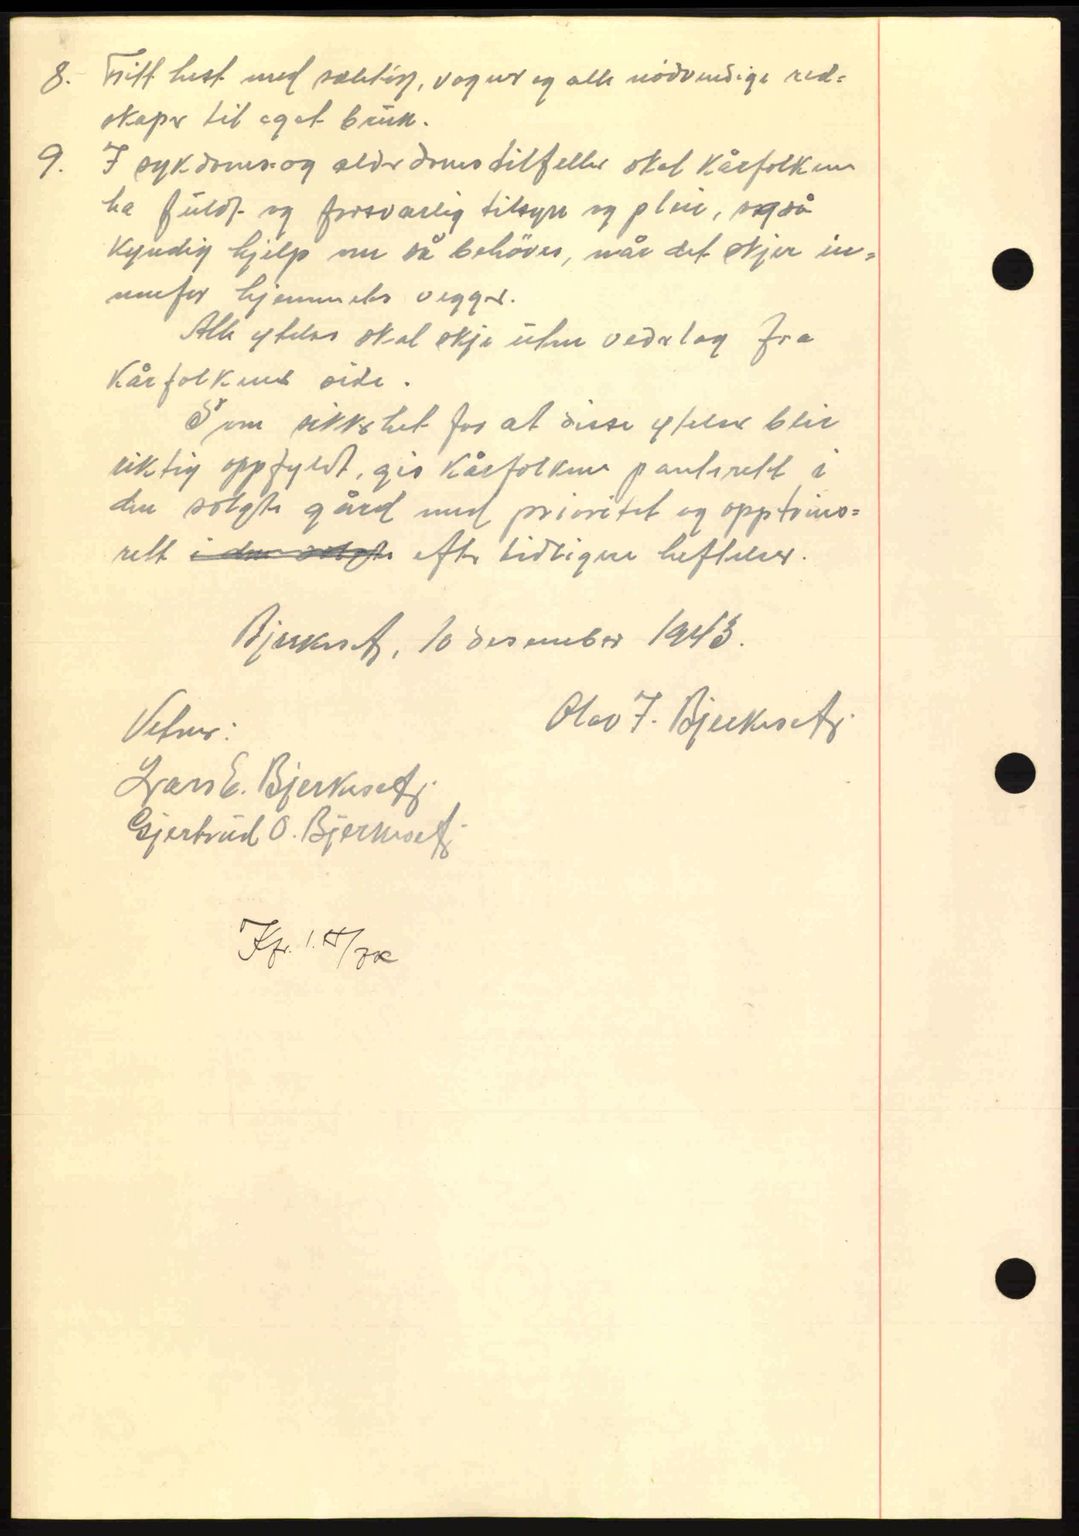 8. Fritt hest med seletöy, vogner og alle nödvendige red=
skaper til eget bruk.
9. I sykdoms- og alderdomstilfeller skal kårfolkene
ha fuldt og forsvarlig tilsyn og pleie, også
kyndig hjelp om så behöves, når det skjer in=
nenfor hjemmets vegger.
Alle ytelser skal skje uten vederlag fra
kårfolkenes side.
Som sikkerhet for at disse ytelser blir
riktig oppfyldt, gis kårfolkene panterett i
den solgte gård med prioritet og opptrins=
rett i den solgte efter tidligere heftelser.
Bjerkeset, 10 desember 1943.
Olav J. Bjerkeset.
Vitner:
Lars E. Bjerkeset.
Gjertrud O. Bjerkeset.
Kfr.